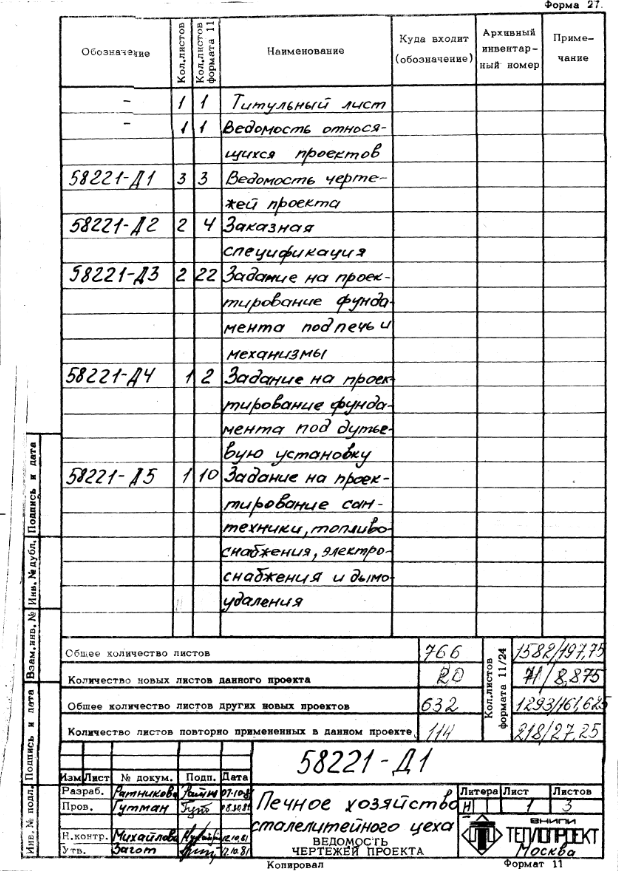 Форма 27.
Обозначение Кол.листов Кол.листов формата 11 Наименование Куда входит (обозначение) Архивный инвентарный номер Примечание
– 1 1 Титульный лист
– 1 1 Ведомость относя-
щихся проектов
58221-Д1 3 3 Ведомость черте-
жей проекта
58221-Д2 2 4 Заказная
спецификация
58221-Д3 2 22 Задание на проек-
тирование фунда-
мента под печь и
механизмы
58221-Д4 1 2 Задание на проек-
тирование фунда-
мента под дутье-
вую установку
58221-Д5 1 10 Задание на проек-
тирование сан-
техники, топливо-
снабжения, электро-
снабжения и дымо-
удаления
Общее количество листов 766 1582/197,75
Количество новых листов данного проекта 20 71/8,875
Общее количество листов других новых проектов 632 1293/161,625
Количество листов повторно примененных в данном проекте 114 218/27,25
Кол.листов формата 11/24
58221-Д1
Изм Лист № докум. Подп. Дата
Разраб. Ратникова
Пров. Гутман
Н.контр. Михайлова
Утв. Загот 12.10.81
Печное хозяйство
сталелитейного цеха
ВЕДОМОСТЬ
ЧЕРТЕЖЕЙ ПРОЕКТА
Литера Лист Листов
Н 1 3
ВНИПИ
ТЕПЛОПРОЕКТ
Москва
Копировал Формат 11
Инв. № подл. Подпись и дата Взам.инв. № Инв. № дубл. Подпись и дата